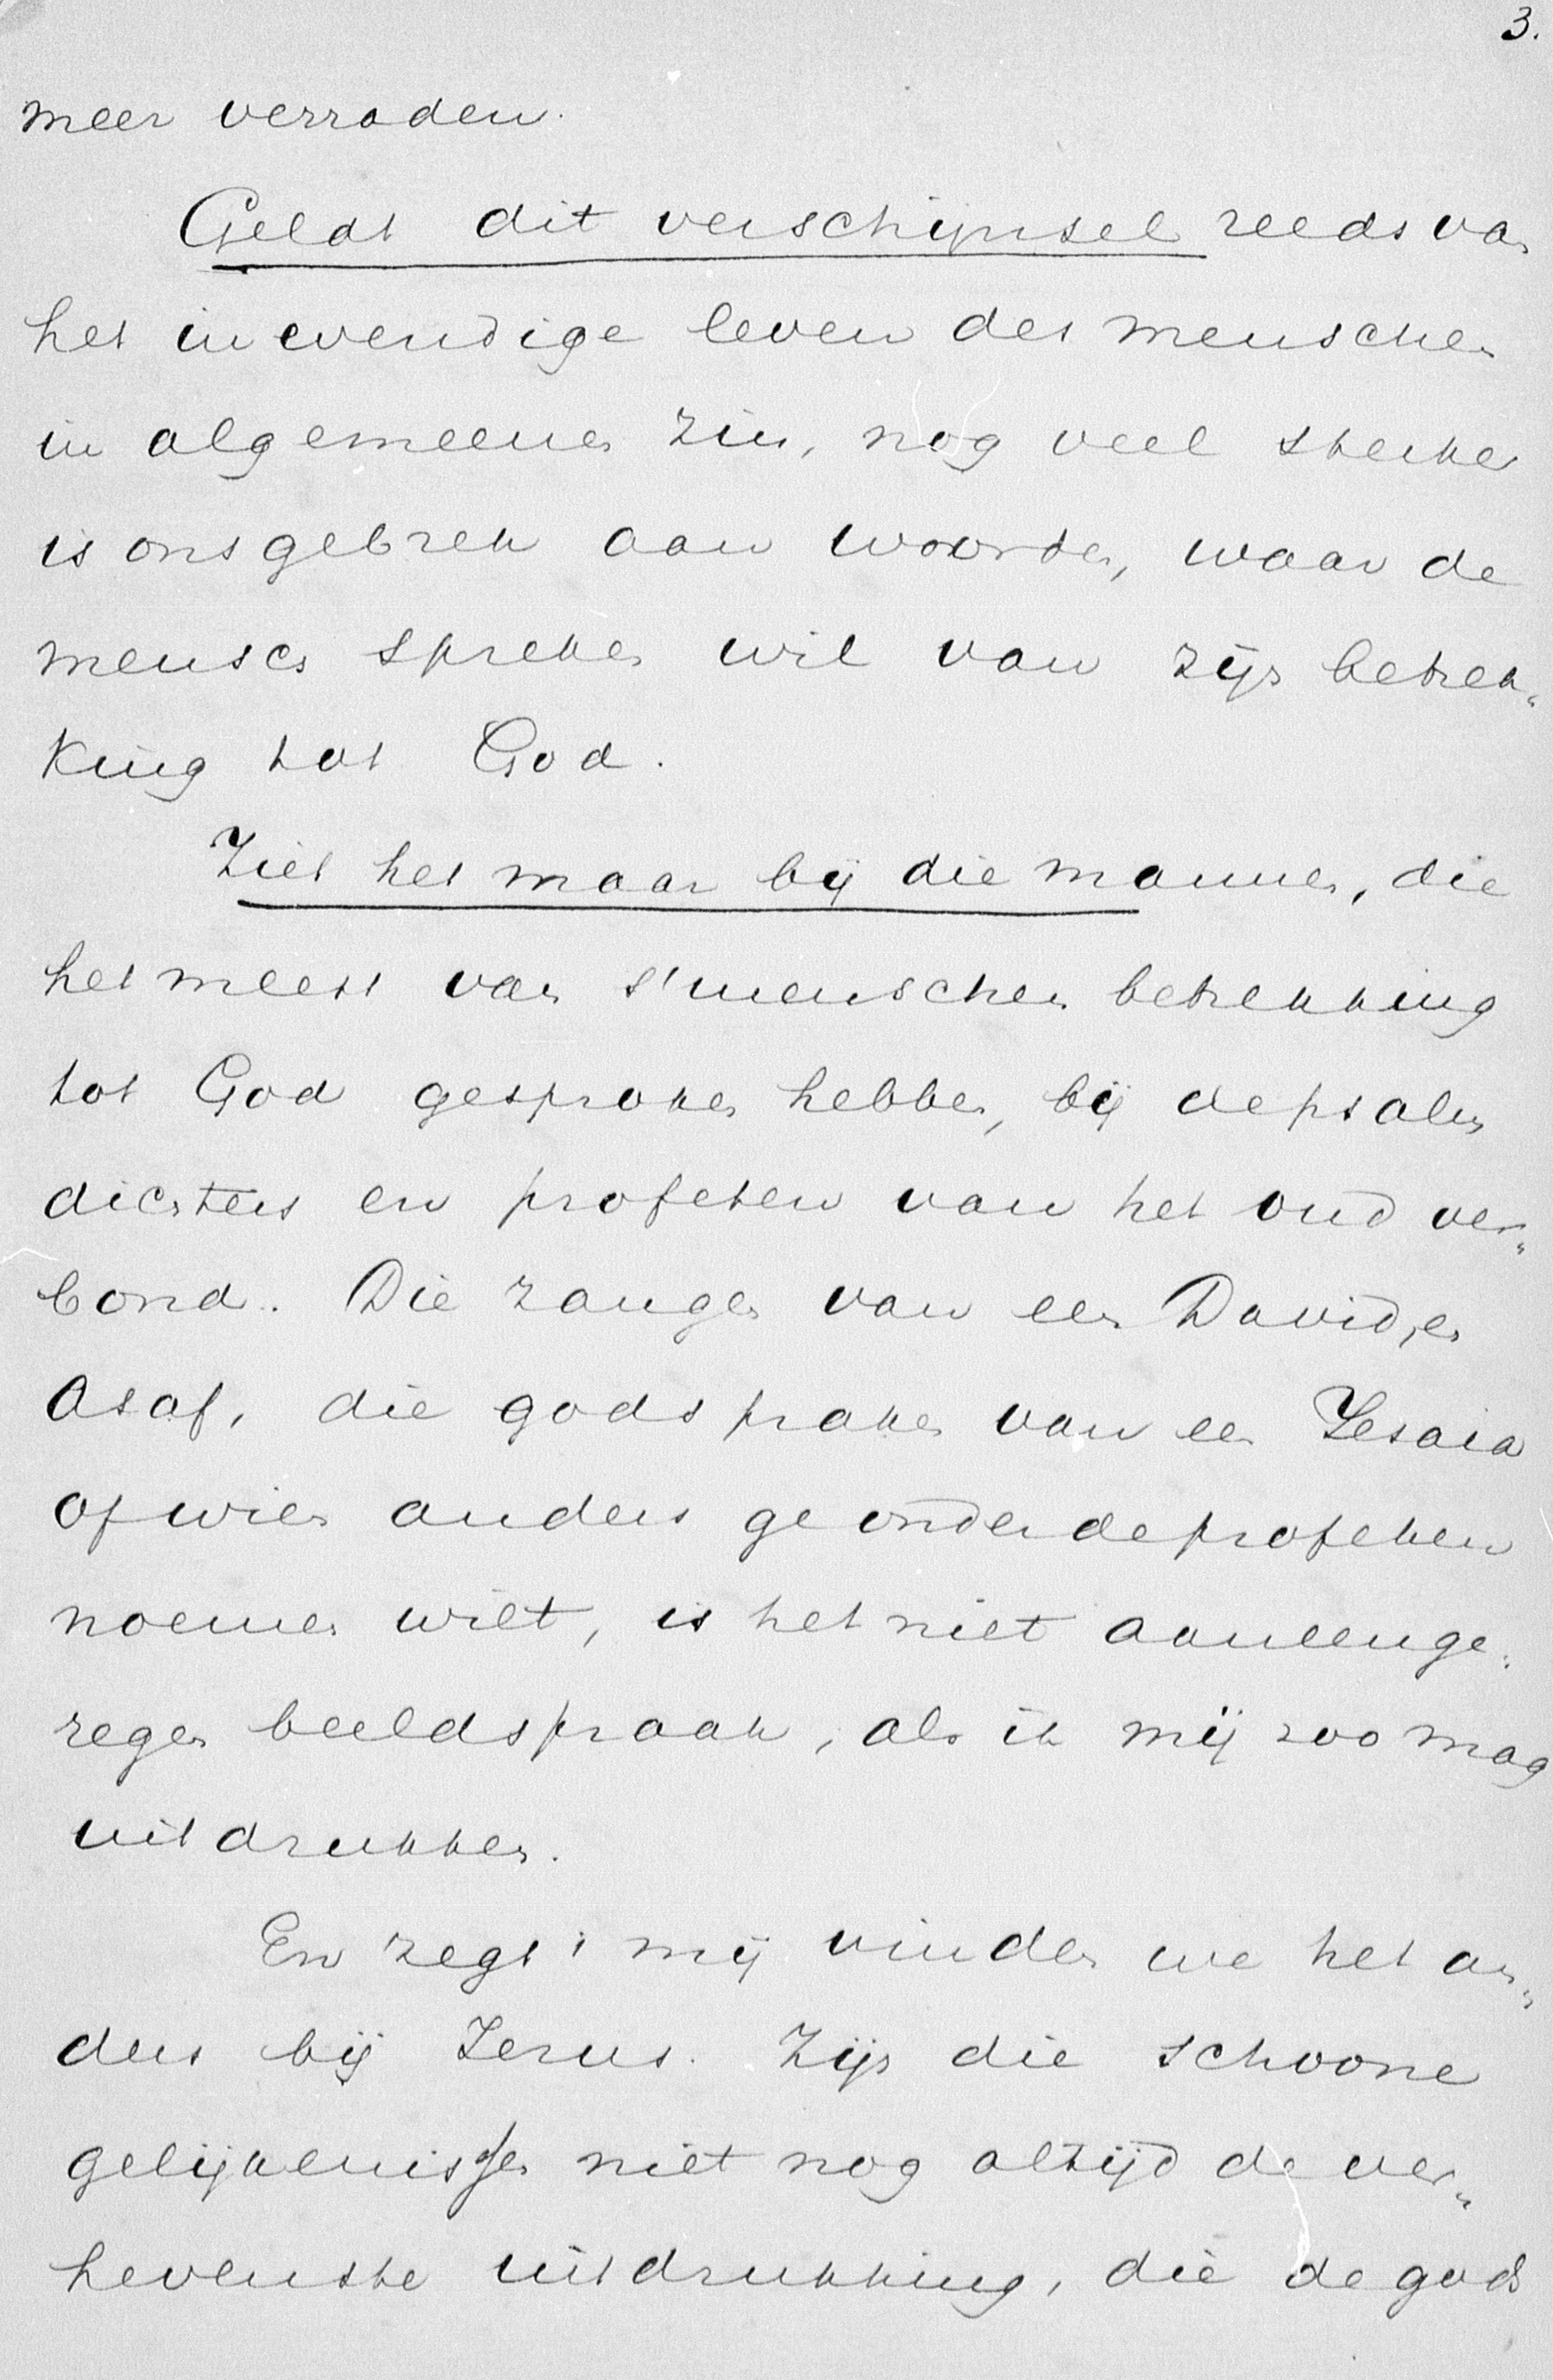 3.
meer verraden.
Geldt dit verschijnsel reeds van
het inwendige leven des menschen
in algemeenen zin, nog veel sterker
is ons gebrek aan woorden, waar de
mensch spreken wil van zijn betrek„
king tot God.
Ziet het maar bij die mannen, die
het meest van s'menschen betrekking
tot God gesproken hebben, bij de psalm
dichters en profeten van het oud ver„
bond. Die zangen van een David, en
Asaf, die godspraken van een Jesaia
of wien anders ge onder de profeten
noemen wilt, is het niet aaneenge„
regen beeldspraak, als ik mij zoo mag
uitdrukken.
En zegt mij vinden we het an„
ders bij Jezus. Zijn die schoone
gelijkenissen niet nog altijd de ver„
hevenste uitdrukking, die de gods